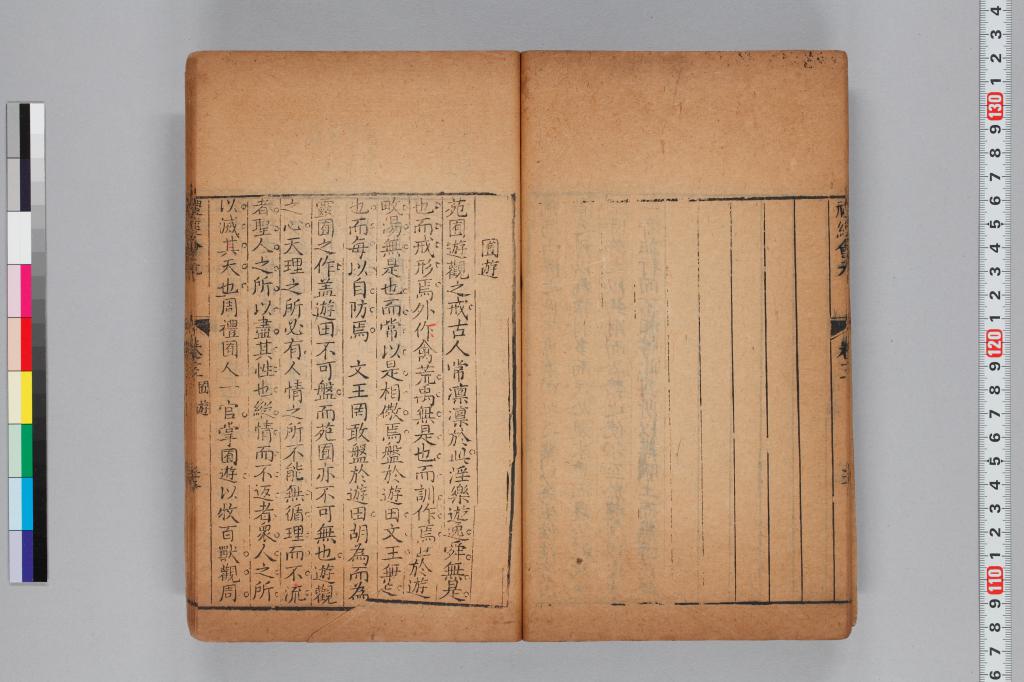 禮經會元
囿遊
苑囿遊觀之戒古人常凛凛於此淫樂遊逸舜無是
也而戒形焉外作禽荒禹無是也而訓作焉於遊
畋湯無是也而常以是相儆焉盤於遊田文王無是
也而每以自防焉 文王罔敢盤於遊田胡為而為
靈囿之作盖遊田不可盤而苑囿亦不可無也遊觀
之心天理之所必有人情之所不能無循理而不流
者聖人之所以盡其性也縱情而不返者衆人之所
以滅其天也周禮囿人一官掌囿遊以牧百獸觀周
禮經會元 卷三 囿遊